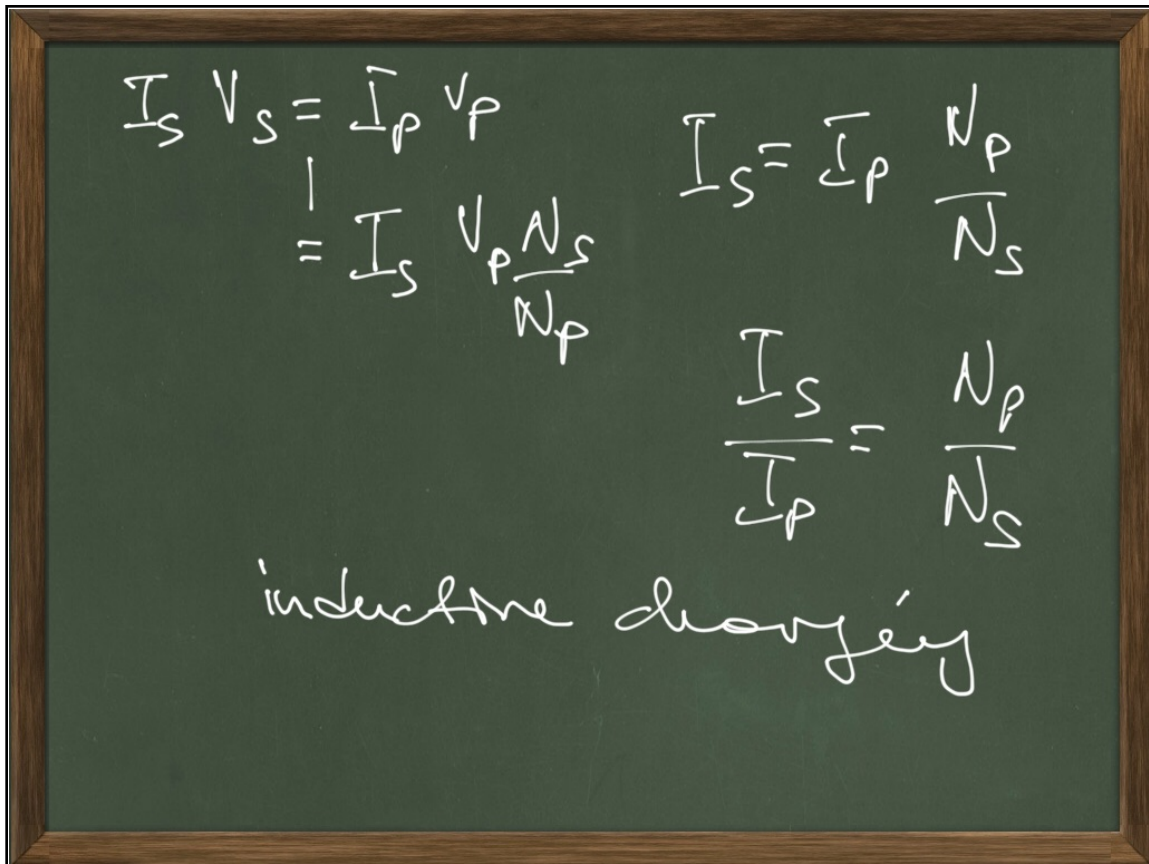 I_S V_S = I_P V_P
|
= I_S V_P N_S / N_P
I_S = I_P N_P / N_S
I_S / I_P = N_P / N_S
inductive charging